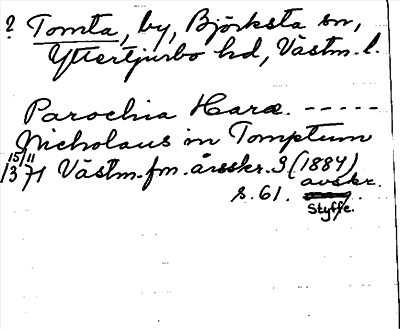 ? Tomta, by, Björksta sn,
Yttertjurbo hd, Västm. l.
Parochia Haræ. -----
Nicholaus in Tomptum
15/11 1371 Västm. fm. årsskr. 3 (1884)
s. 61. avskr.
Styffe.